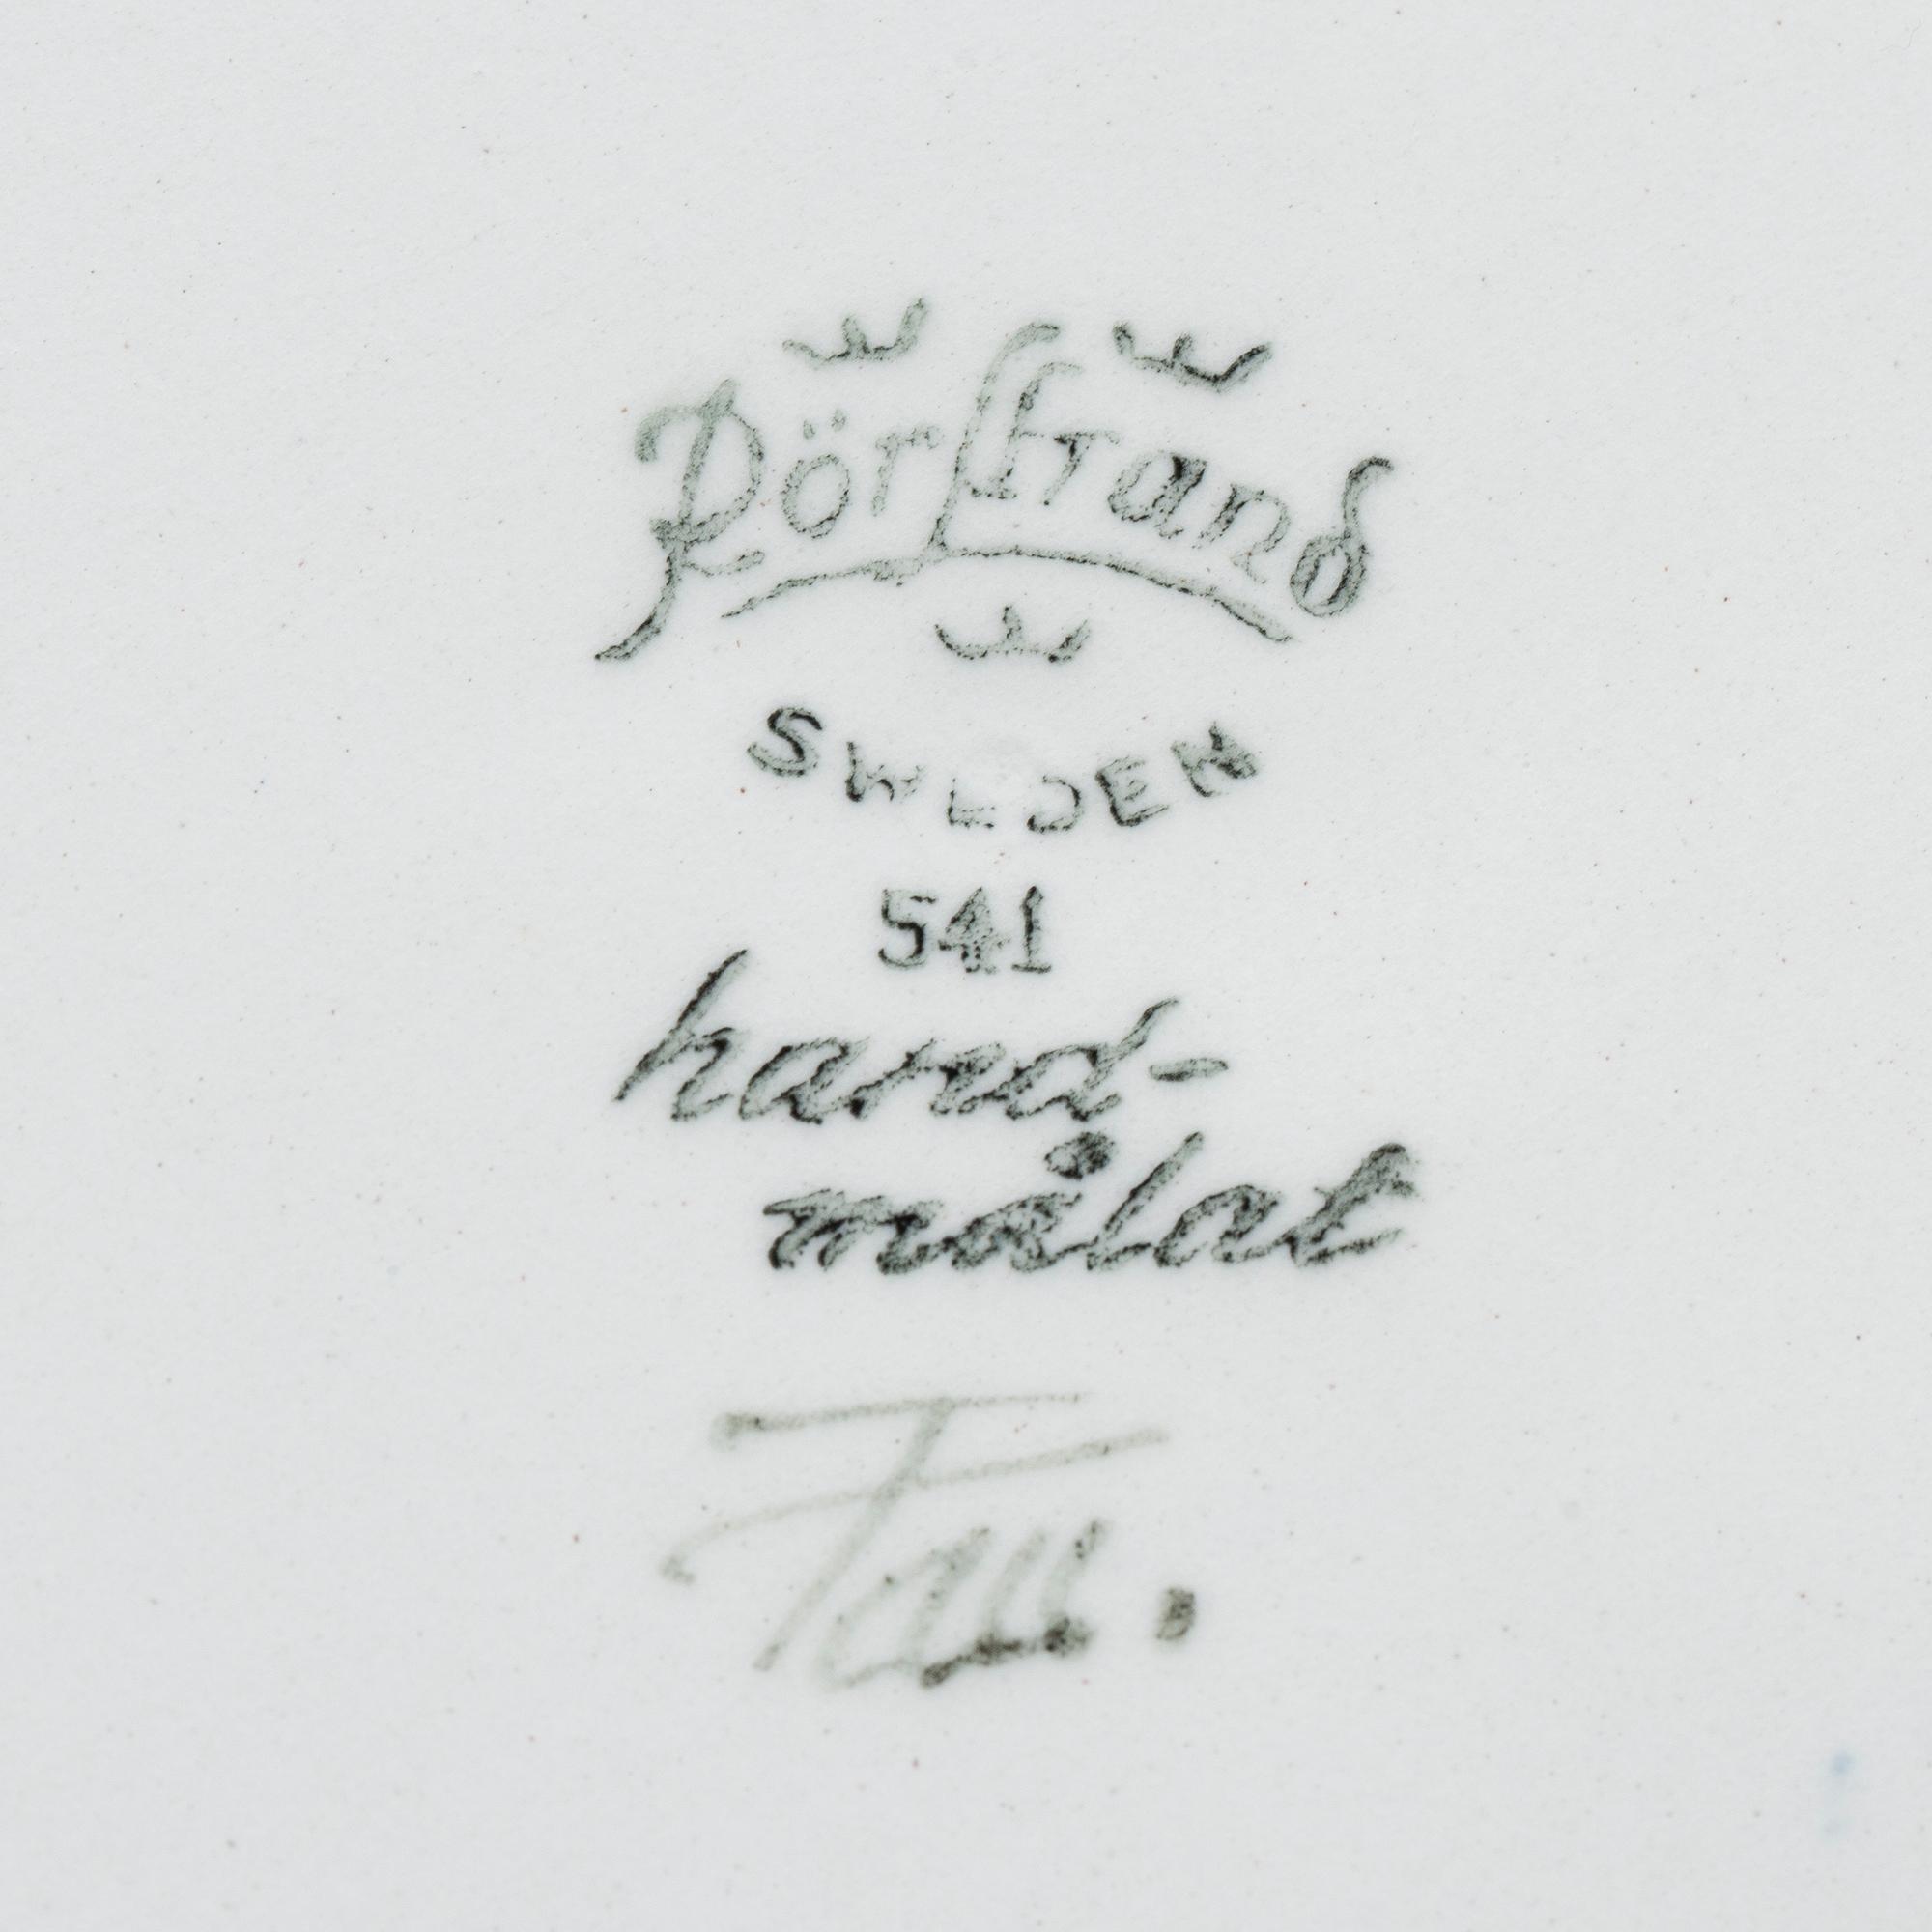 Rörstrand
SWEDEN
541
hand-
målat